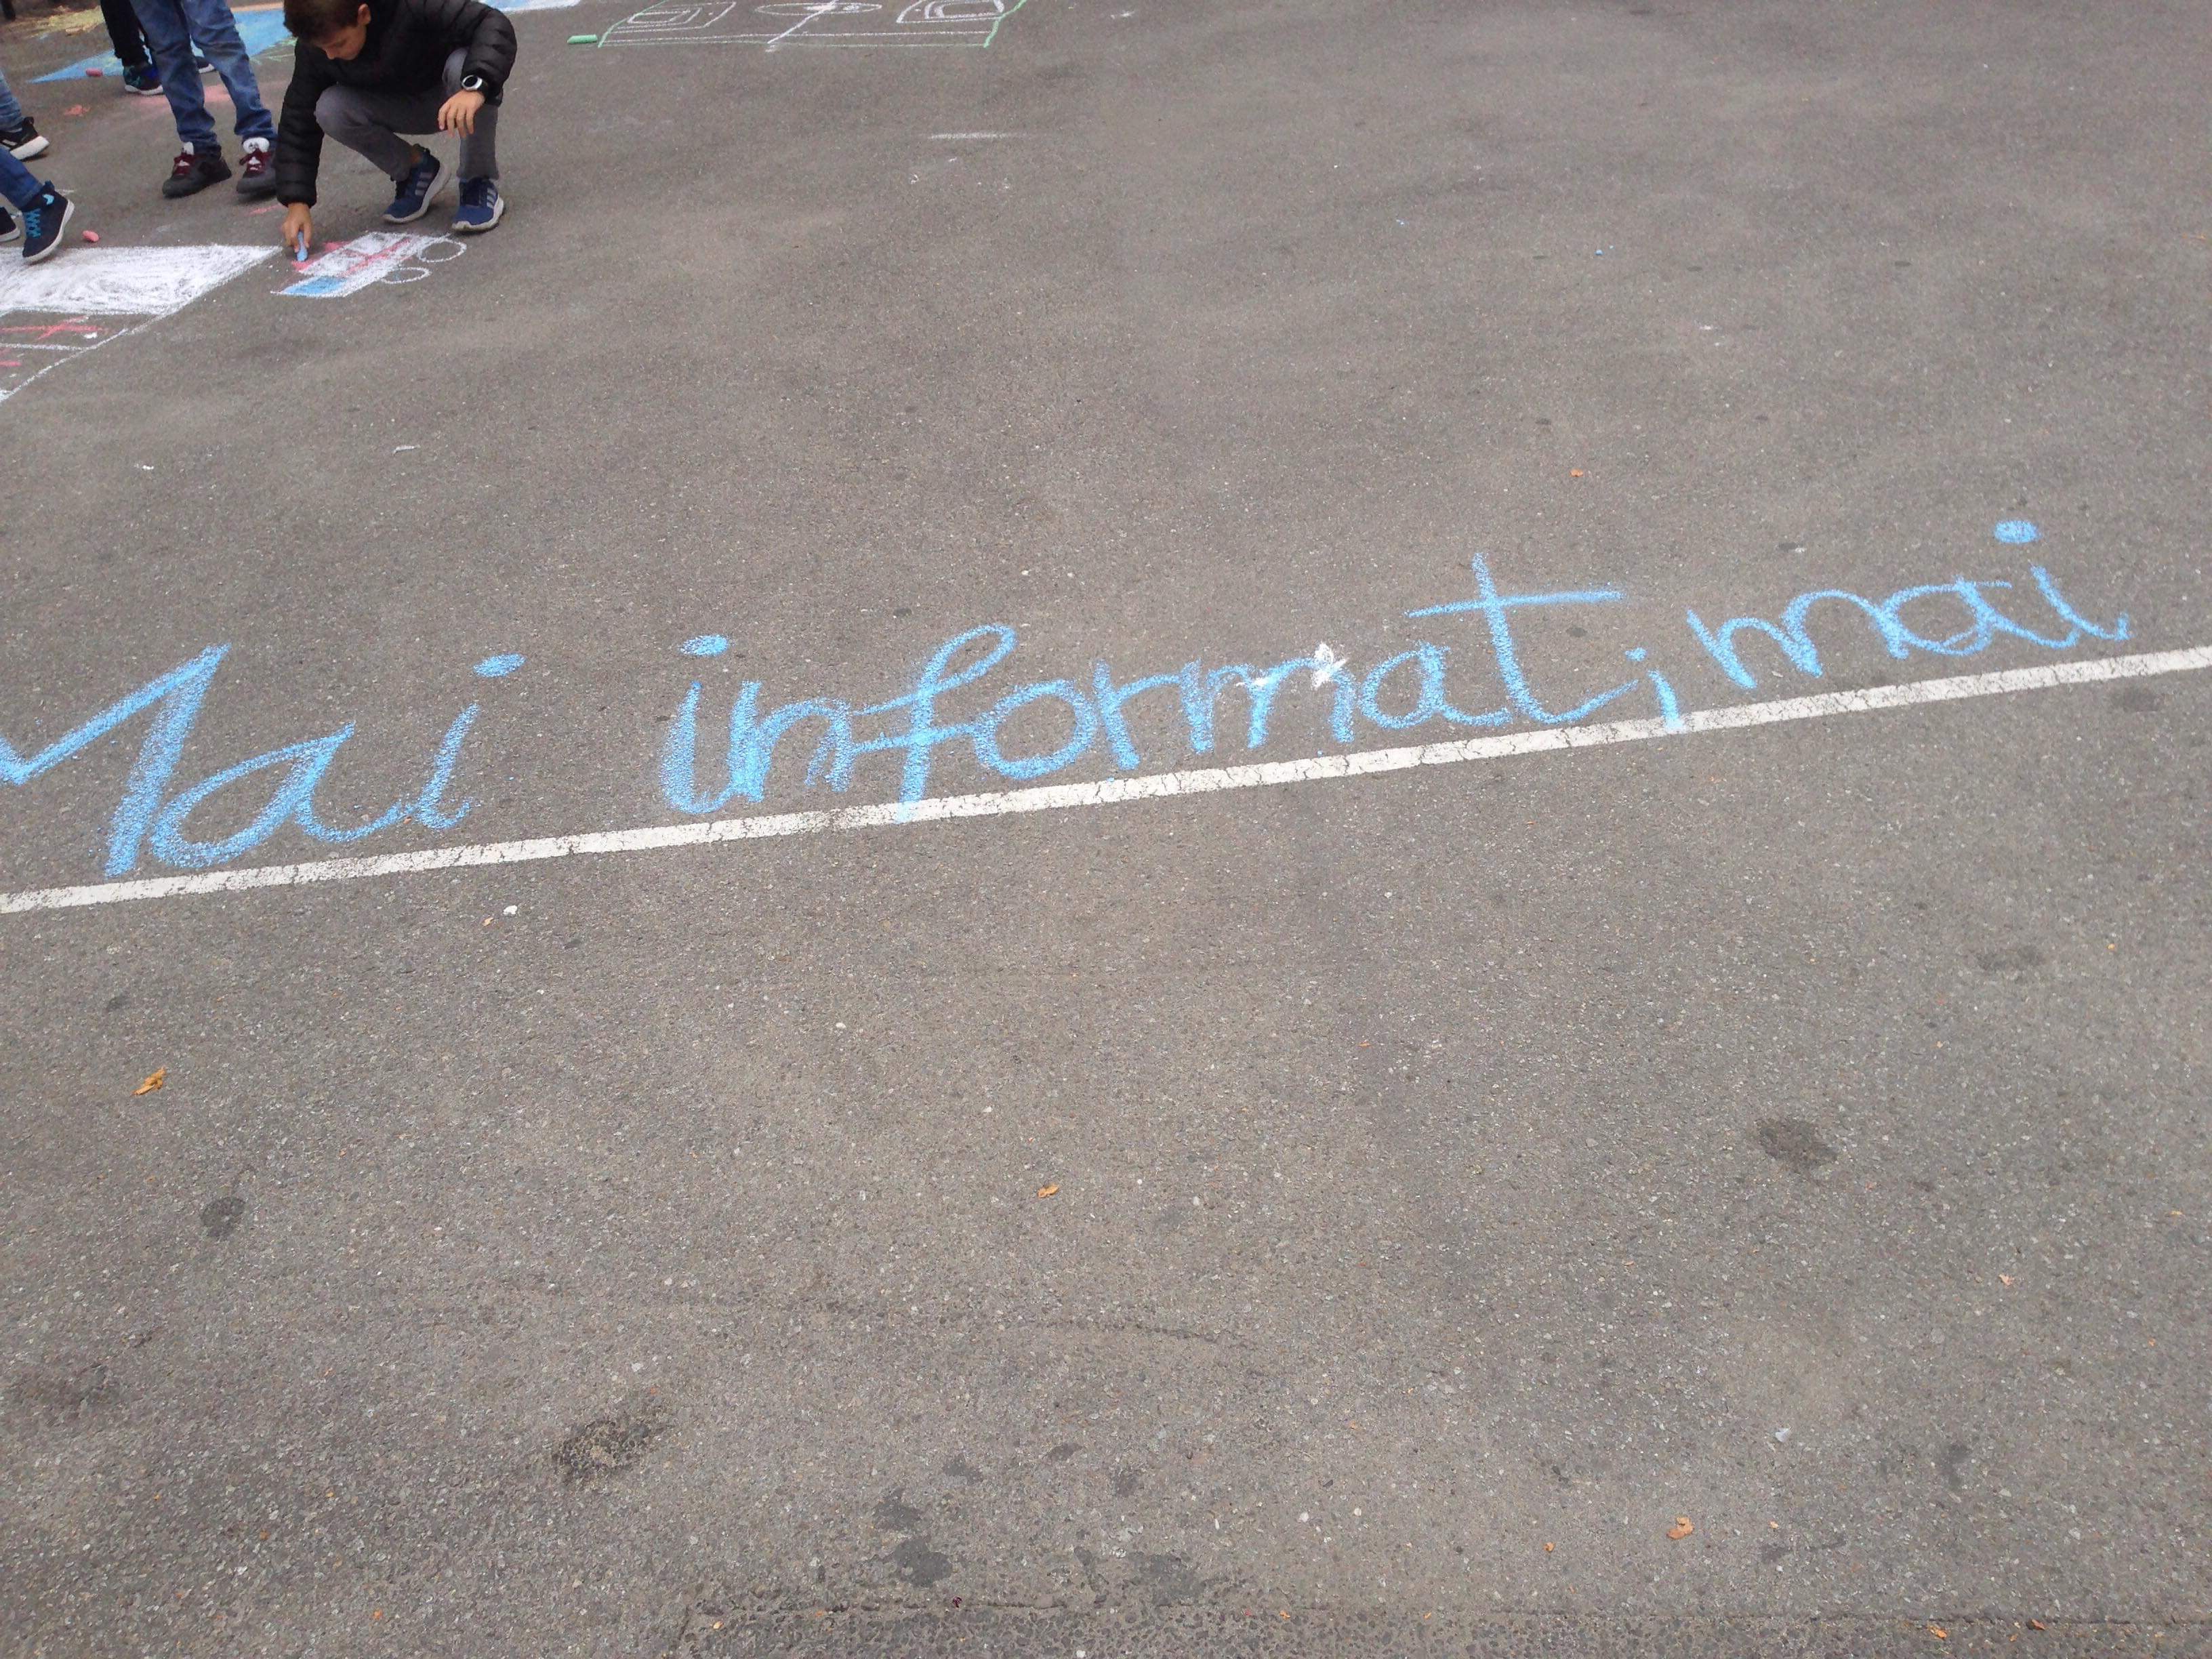 Mai informat, mai